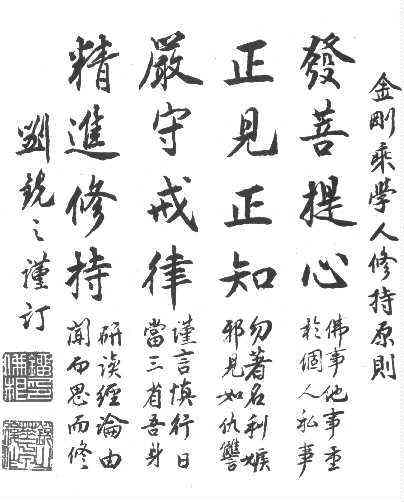 金剛乘學人修持原則
發菩提心
佛事他事重
於個人私事
正見正知
勿著名利嫉
邪見如仇讐
嚴守戒律
謹言慎行日
當三省吾身
精進修持
研談經論由
聞而思而修
劉銳之謹訂